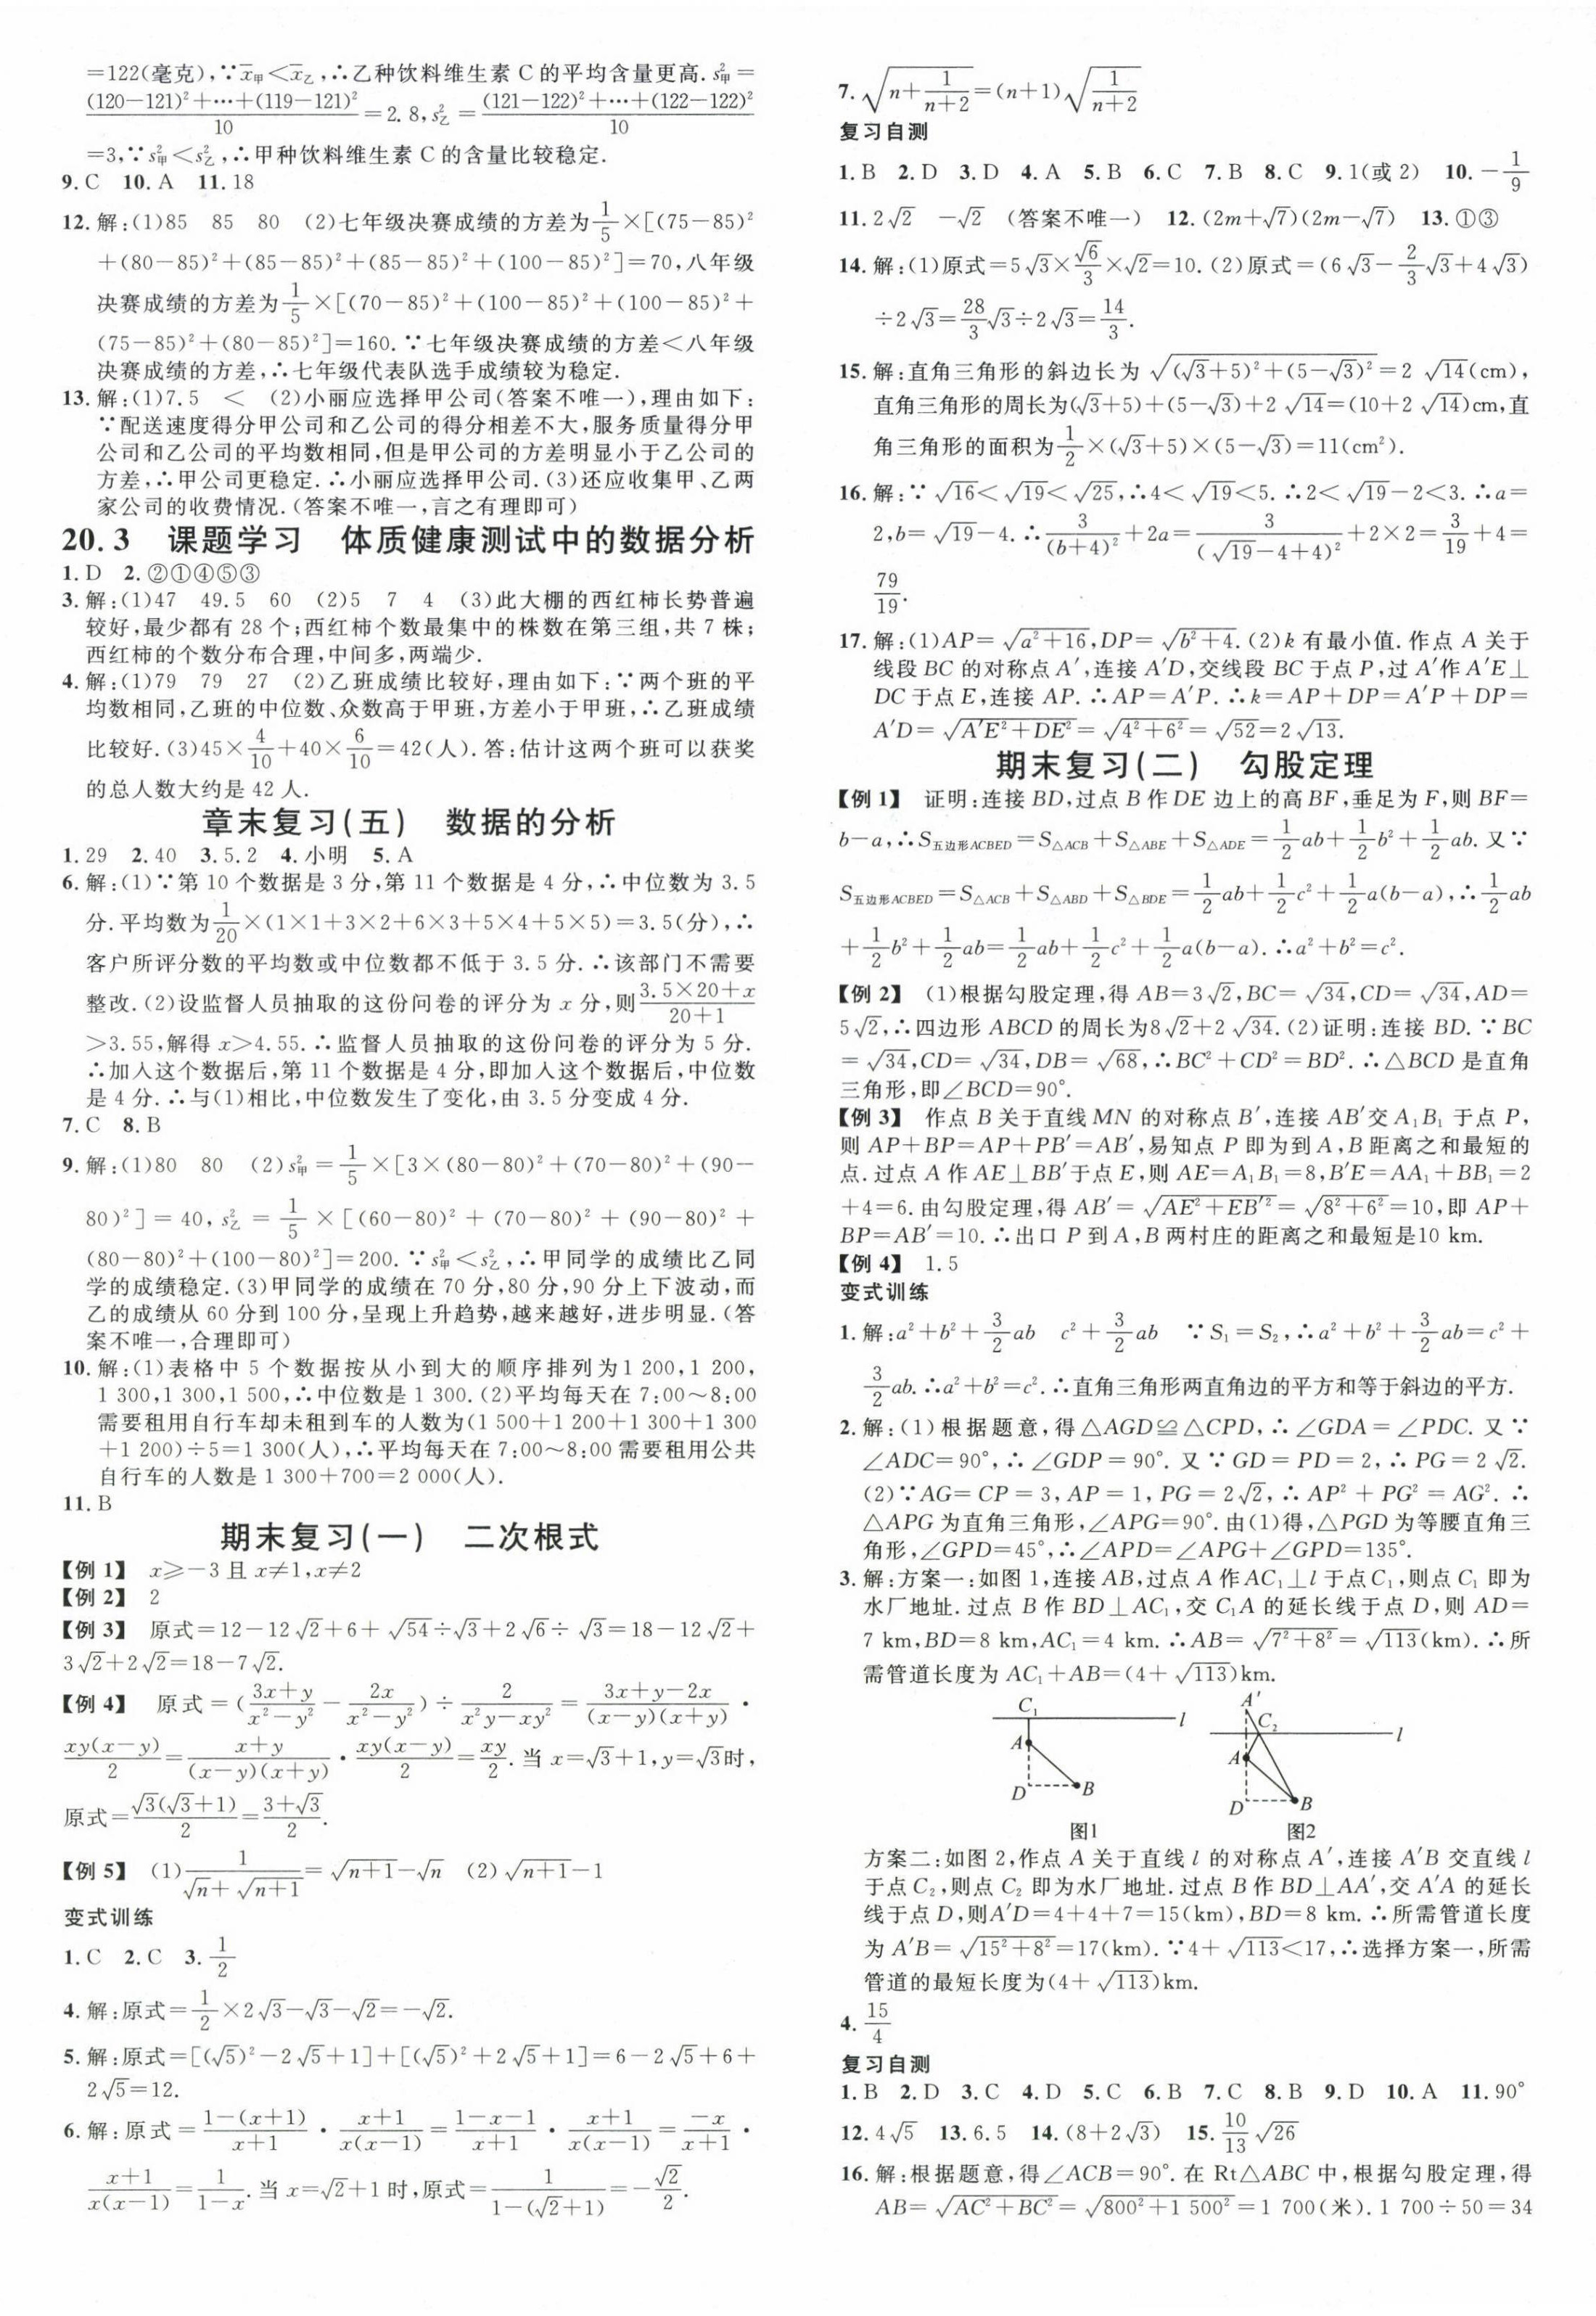 =122(毫克),∵x̄甲<x̄乙,∴乙种饮料维生素 C 的平均含量更高. s²甲=
(120−121)²+…+(119−121)²/10=2.8,s²乙=(121−122)²+…+(122−122)²/10
=3,∵s²甲<s²乙,∴甲种饮料维生素 C 的含量比较稳定.
9. C 10. A 11. 18
12. 解:(1)85 85 80 (2)七年级决赛成绩的方差为1/5×[(75−85)²
+(80−85)²+(85−85)²+(85−85)²+(100−85)²]=70,八年级
决赛成绩的方差为1/5×[(70−85)²+(100−85)²+(100−85)²+
(75−85)²+(80−85)²]=160. ∵七年级决赛成绩的方差<八年级
决赛成绩的方差,∴七年级代表队选手成绩较为稳定.
13. 解:(1)7.5 < (2)小丽应选择甲公司(答案不唯一),理由如下:
∵配送速度得分甲公司和乙公司的得分相差不大,服务质量得分甲
公司和乙公司的平均数相同,但是甲公司的方差明显小于乙公司的
方差,∴甲公司更稳定.∴小丽应选择甲公司.(3)还应收集甲、乙两
家公司的收费情况.(答案不唯一,言之有理即可)
20.3 课题学习 体质健康测试中的数据分析
1. D 2. ②①④⑤③
3. 解:(1)47 49.5 60 (2)5 7 4 (3)此大棚的西红柿长势普遍
较好,最少都有 28 个;西红柿个数最集中的株数在第三组,共 7 株;
西红柿的个数分布合理,中间多,两端少.
4. 解:(1)79 79 27 (2)乙班成绩比较好,理由如下:∵两个班的平
均数相同,乙班的中位数、众数高于甲班,方差小于甲班,∴乙班成绩
比较好.(3)45×4/10+40×6/10=42(人). 答:估计这两个班可以获奖
的总人数大约是 42 人.
章末复习(五) 数据的分析
1. 29 2. 40 3. 5.2 4. 小明 5. A
6. 解:(1)∵第 10 个数据是 3 分,第 11 个数据是 4 分,∴中位数为 3.5
分. 平均数为1/20×(1×1+3×2+6×3+5×4+5×5)=3.5(分),∴
客户所评分数的平均数或中位数都不低于 3.5 分.∴该部门不需要
整改.(2)设监督人员抽取的这份问卷的评分为 x 分,则(3.5×20+x)/(20+1)
>3.55,解得 x>4.55.∴监督人员抽取的这份问卷的评分为 5 分.
∴加入这个数据后,第 11 个数据是 4 分,即加入这个数据后,中位数
是 4 分.∴与(1)相比,中位数发生了变化,由 3.5 分变成 4 分.
7. C 8. B
9. 解:(1)80 80 (2)s²甲=1/5×[3×(80−80)²+(70−80)²+(90−
80)²]=40,s²乙=1/5×[(60−80)²+(70−80)²+(90−80)²+
(80−80)²+(100−80)²]=200. ∵s²甲<s²乙,∴甲同学的成绩比乙同
学的成绩稳定.(3)甲同学的成绩在 70 分,80 分,90 分上下波动,而
乙的成绩从 60 分到 100 分,呈现上升趋势,越来越好,进步明显.(答
案不唯一,合理即可)
10. 解:(1)表格中 5 个数据按从小到大的顺序排列为1 200,1 200,
1 300,1 300,1 500,∴中位数是 1 300.(2)平均每天在 7:00~8:00
需要租用自行车却未租到车的人数为(1 500+1 200+1 300+1 300
+1 200)÷5=1 300(人),∴平均每天在 7:00~8:00 需要租用公共
自行车的人数是 1 300+700=2 000(人).
11. B
期末复习(一) 二次根式
【例 1】 x≥−3 且 x≠1,x≠2
【例 2】 2
【例 3】 原式=12−12√2+6+√54÷√3+2√6÷√3=18−12√2+
3√2+2√2=18−7√2.
【例 4】 原式=((3x+y)/(x²−y²)−2x/(x²−y²))÷2/(x²y−xy²)=(3x+y−2x)/((x−y)(x+y))·
xy(x−y)/2=(x+y)/((x−y)(x+y))·xy(x−y)/2=xy/2. 当 x=√3+1,y=√3时,
原式=√3(√3+1)/2=(3+√3)/2.
【例 5】 (1)1/(√n+√(n+1))=√(n+1)−√n (2)√(n+1)−1
变式训练
1. C 2. C 3. 1/2
4. 解:原式=1/2×2√3−√3−√2=−√2.
5. 解:原式=[(√5)²−2√5+1]+[(√5)²+2√5+1]=6−2√5+6+
2√5=12.
6. 解:原式=(1−(x+1))/(x+1)·(x+1)/(x(x−1))=(1−x−1)/(x+1)·(x+1)/(x(x−1))=−x/(x+1)·
(x+1)/(x(x−1))=1/(1−x). 当 x=√2+1 时,原式=1/(1−(√2+1))=−√2/2.
7. √(n+1/(n+2))=(n+1)√(1/(n+2))
复习自测
1. B 2. D 3. D 4. A 5. B 6. C 7. B 8. C 9. 1(或 2) 10. −1/9
11. 2√2 −√2 (答案不唯一) 12. (2m+√7)(2m−√7) 13. ①③
14. 解:(1)原式=5√3×√6/3×√2=10.(2)原式=(6√3−2/3√3+4√3)
÷2√3=28/3√3÷2√3=14/3.
15. 解:直角三角形的斜边长为 √((√3+5)²+(5−√3)²)=2√14(cm),
直角三角形的周长为(√3+5)+(5−√3)+2√14=(10+2√14)cm,直
角三角形的面积为1/2×(√3+5)×(5−√3)=11(cm²).
16. 解:∵√16<√19<√25,∴4<√19<5.∴2<√19−2<3.∴a=
2,b=√19−4.∴3/(b+4)²+2a=3/(√19−4+4)²+2×2=3/19+4=
79/19.
17. 解:(1)AP=√(a²+16),DP=√(b²+4).(2)k 有最小值. 作点 A 关于
线段 BC 的对称点 A′,连接 A′D,交线段 BC 于点 P,过 A′作 A′E⊥
DC 于点 E,连接 AP.∴AP=A′P.∴k=AP+DP=A′P+DP=
A′D=√(A′E²+DE²)=√(4²+6²)=√52=2√13.
期末复习(二) 勾股定理
【例 1】 证明:连接 BD,过点 B 作 DE 边上的高 BF,垂足为 F,则 BF=
b−a,∴S五边形ACBED=S△ACB+S△ABE+S△ADE=1/2ab+1/2b²+1/2ab. 又∵
S五边形ACBED=S△ACB+S△ABD+S△BDE=1/2ab+1/2c²+1/2a(b−a),∴1/2ab
+1/2b²+1/2ab=1/2ab+1/2c²+1/2a(b−a).∴a²+b²=c².
【例 2】 (1)根据勾股定理,得 AB=3√2,BC=√34,CD=√34,AD=
5√2,∴四边形 ABCD 的周长为8√2+2√34.(2)证明:连接 BD.∵BC
=√34,CD=√34,DB=√68,∴BC²+CD²=BD².∴△BCD 是直角
三角形,即∠BCD=90°.
【例 3】 作点 B 关于直线MN 的对称点 B′,连接 AB′交 A₁B₁ 于点 P,
则 AP+BP=AP+PB′=AB′,易知点 P 即为到 A,B 距离之和最短的
点. 过点 A 作 AE⊥BB′于点 E,则 AE=A₁B₁=8,B′E=AA₁+BB₁=2
+4=6. 由勾股定理,得 AB′=√(AE²+EB′²)=√(8²+6²)=10,即 AP+
BP=AB′=10.∴出口 P 到 A,B 两村庄的距离之和最短是10 km.
【例 4】 1.5
变式训练
1. 解:a²+b²+3/2ab c²+3/2ab ∵S₁=S₂,∴a²+b²+3/2ab=c²+
3/2ab.∴a²+b²=c².∴直角三角形两直角边的平方和等于斜边的平方.
2. 解:(1)根据题意,得△AGD≌△CPD,∴∠GDA=∠PDC. 又∵
∠ADC=90°,∴∠GDP=90°. 又∵GD=PD=2,∴PG=2√2.
(2)∵AG=CP=3,AP=1,PG=2√2,∴AP²+PG²=AG².∴
△APG 为直角三角形,∠APG=90°. 由(1)得,△PGD 为等腰直角三
角形,∠GPD=45°,∴∠APD=∠APG+∠GPD=135°.
3. 解:方案一:如图 1,连接 AB,过点 A 作 AC₁⊥l 于点C₁,则点 C₁ 即为
水厂地址. 过点 B 作 BD⊥AC₁,交 C₁A 的延长线于点 D,则 AD=
7 km,BD=8 km,AC₁=4 km.∴AB=√(7²+8²)=√113(km).∴所
需管道长度为 AC₁+AB=(4+√113)km.
C₁ l A D B 图1
A′ C₂ l A D B 图2
方案二:如图 2,作点 A 关于直线 l 的对称点 A′,连接 A′B 交直线 l
于点 C₂,则点 C₂ 即为水厂地址. 过点 B 作 BD⊥AA′,交 A′A 的延长
线于点 D,则A′D=4+4+7=15(km),BD=8 km.∴所需管道长度
为 A′B=√(15²+8²)=17(km).∵4+√113<17,∴选择方案一,所需
管道的最短长度为(4+√113)km.
4. 15/4
复习自测
1. B 2. D 3. C 4. D 5. C 6. B 7. C 8. B 9. D 10. A 11. 90°
12. 4√5 13. 6.5 14. (8+2√3) 15. 10/13√26
16. 解:根据题意,得∠ACB=90°. 在 Rt△ABC 中,根据勾股定理,得
AB=√(AC²+BC²)=√(800²+1 500²)=1 700(米). 1 700÷50=34